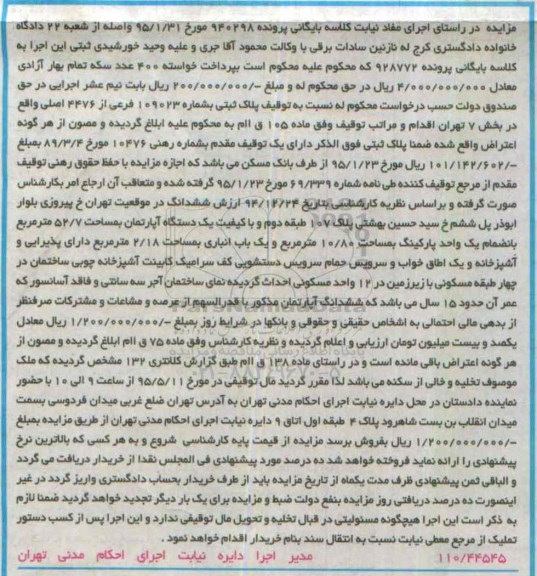 مزایده در راستای اجرای مفاد نیابت کلاسه بایگانی پرونده ۹۴۰۲۹۸ مورخ ۹۵/۱/۳۱ واصله از شعبه ۲۲ دادگاه
خانواده دادگستری کرج له نازنین سادات برقی با وکالت محمود آقا جری و علیه وحید خورشیدی ثبتی این اجرا به
کلاسه بایگانی پرونده ۹۲۸۷۷۲ که محکوم علیه محکوم است بپرداخت خواسته ۴۰۰ عدد سکه تمام بهار آزادی
معادل ۴/۰۰۰/۰۰۰/۰۰۰ ریال در حق محکوم له و مبلغ -/۲۰۰/۰۰۰/۰۰۰ ریال بابت نیم عشر اجرایی در حق
صندوق دولت حسب درخواست محکوم له نسبت به توقیف پلاک ثبتی بشماره ۱۰۹۰۲۳ فرعی از ۴۴۷۶ اصلی واقع
در بخش ۷ تهران اقدام و مراتب توقیف وفق ماده ۱۰۵ ق اام به محکوم علیه ابلاغ گردیده و مصون از هر گونه
اعتراض واقع شده ضمنا پلاک ثبتی فوق الذکر دارای یک توقیف مقدم بشماره رهنی ۱۰۴۷۶ مورخ ۸۹/۳/۴ بمبلغ
-/۱۰۱/۱۴۲/۶۰۲ ریال مورخ ۹۵/۱/۲۳ از طرف بانک مسکن می باشد که اجازه مزایده با حفظ حقوق رهنی توقیف
مقدم از مرجع توقیف کننده طی نامه شماره ۶۹/۳۳۹ مورخ ۹۵/۱/۲۳ گرفته شده و متعاقب آن ارجاع امر بکارشناس
صورت گرفته و براساس نظریه کارشناسی بتاریخ ۹۴/۱۲/۲۴ ارزش ششدانگ در موقعیت تهران خ پیروزی بلوار
ابوذر پل ششم خ سید حسین بهشتی پلاک ۱۰۷ طبقه دوم و با کیفیت یک دستگاه آپارتمان بمساحت ۵۲/۷ مترمربع
بانضمام یک واحد پارکینگ بمساحت ۱۰/۸۰ مترمربع و یک باب انباری بمساحت ۲/۱۸ مترمربع دارای پذیرایی و
آشپزخانه و یک اطاق خواب و سرویس حمام سرویس دستشویی کف سرامیک کابینت آشپزخانه چوبی ساختمان در
چهار طبقه مسکونی با زیرزمین در ۱۲ واحد مسکونی احداث گردیده نمای ساختمان آجر سه سانتی و فاقد آسانسور که
عمر آن حدود ۱۵ سال می باشد که ششدانگ آپارتمان مذکور با قدرالسهم از عرصه و مشاعات و مشترکات صرفنظر
از بدهی مالی احتمالی به اشخاص حقیقی و حقوقی و بانکها در شرایط روز بمبلغ -/۱/۲۰۰/۰۰۰/۰۰۰ ریال معادل
یکصد و بیست میلیون تومان ارزیابی و اعلام گردیده و نظریه کارشناس وفق ماده ۷۵ ق اام ابلاغ گردیده و مصون از
هر گونه اعتراض باقی مانده است و در راستای ماده ۱۳۸ ق اام طبق گزارش کلانتری ۱۳۲ مشخص گردیده که ملک
موصوف تخلیه و خالی از سکنه می باشد لذا مقرر گردید مال توقیفی در مورخ ۹۵/۵/۱۱ از ساعت ۹ الی ۱۰ با حضور
نماینده دادستان در محل دایره نیابت اجرای احکام مدنی تهران به آدرس تهران ضلع غربی میدان فردوسی بسمت
میدان انقلاب بن بست شاهرود پلاک ۴ طبقه اول اتاق ۹ دایره نیابت اجرای احکام مدنی تهران از طریق مزایده بمبلغ
-/۱/۲۰۰/۰۰۰/۰۰۰ ریال بفروش برسد مزایده از قیمت پایه کارشناسی شروع و به هر کسی که بالاترین نرخ
پیشنهادی را ارائه نماید فروخته خواهد شد ده درصد مورد پیشنهادی فی المجلس نقدا از خریدار دریافت می گردد
و الباقی ثمن پیشنهادی ظرف مدت یکماه از تاریخ مزایده باید از طرف خریدار بحساب دادگستری واریز گردد در غیر
اینصورت ده درصد دریافتی روز مزایده بنفع دولت ضبط و مزایده برای یک بار دیگر تجدید خواهد گردید ضمنا لازم
به ذکر است این اجرا هیچگونه مسئولیتی در قبال تخلیه و تحویل مال توقیفی ندارد و این اجرا پس از کسب دستور
تملیک از مرجع معطی نیابت نسبت به انتقال سند بنام خریدار اقدام خواهد نمود .
۱۱۰/۴۴۵۴۵ مدیر اجرا دایره نیابت اجرای احکام مدنی تهران